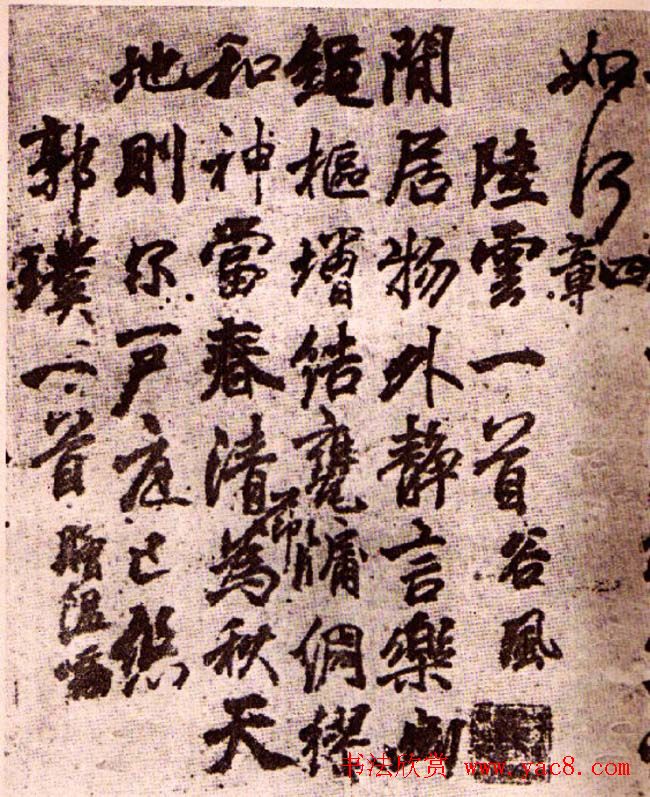 如何四章
陸雲一首谷風
閒居物外靜言樂幽
繩樞增結甕牖綢繆
和神當春清節為秋天
地則尔戶庭已悠
郭璞一首贈溫嶠
书法欣赏 www.yac8.com